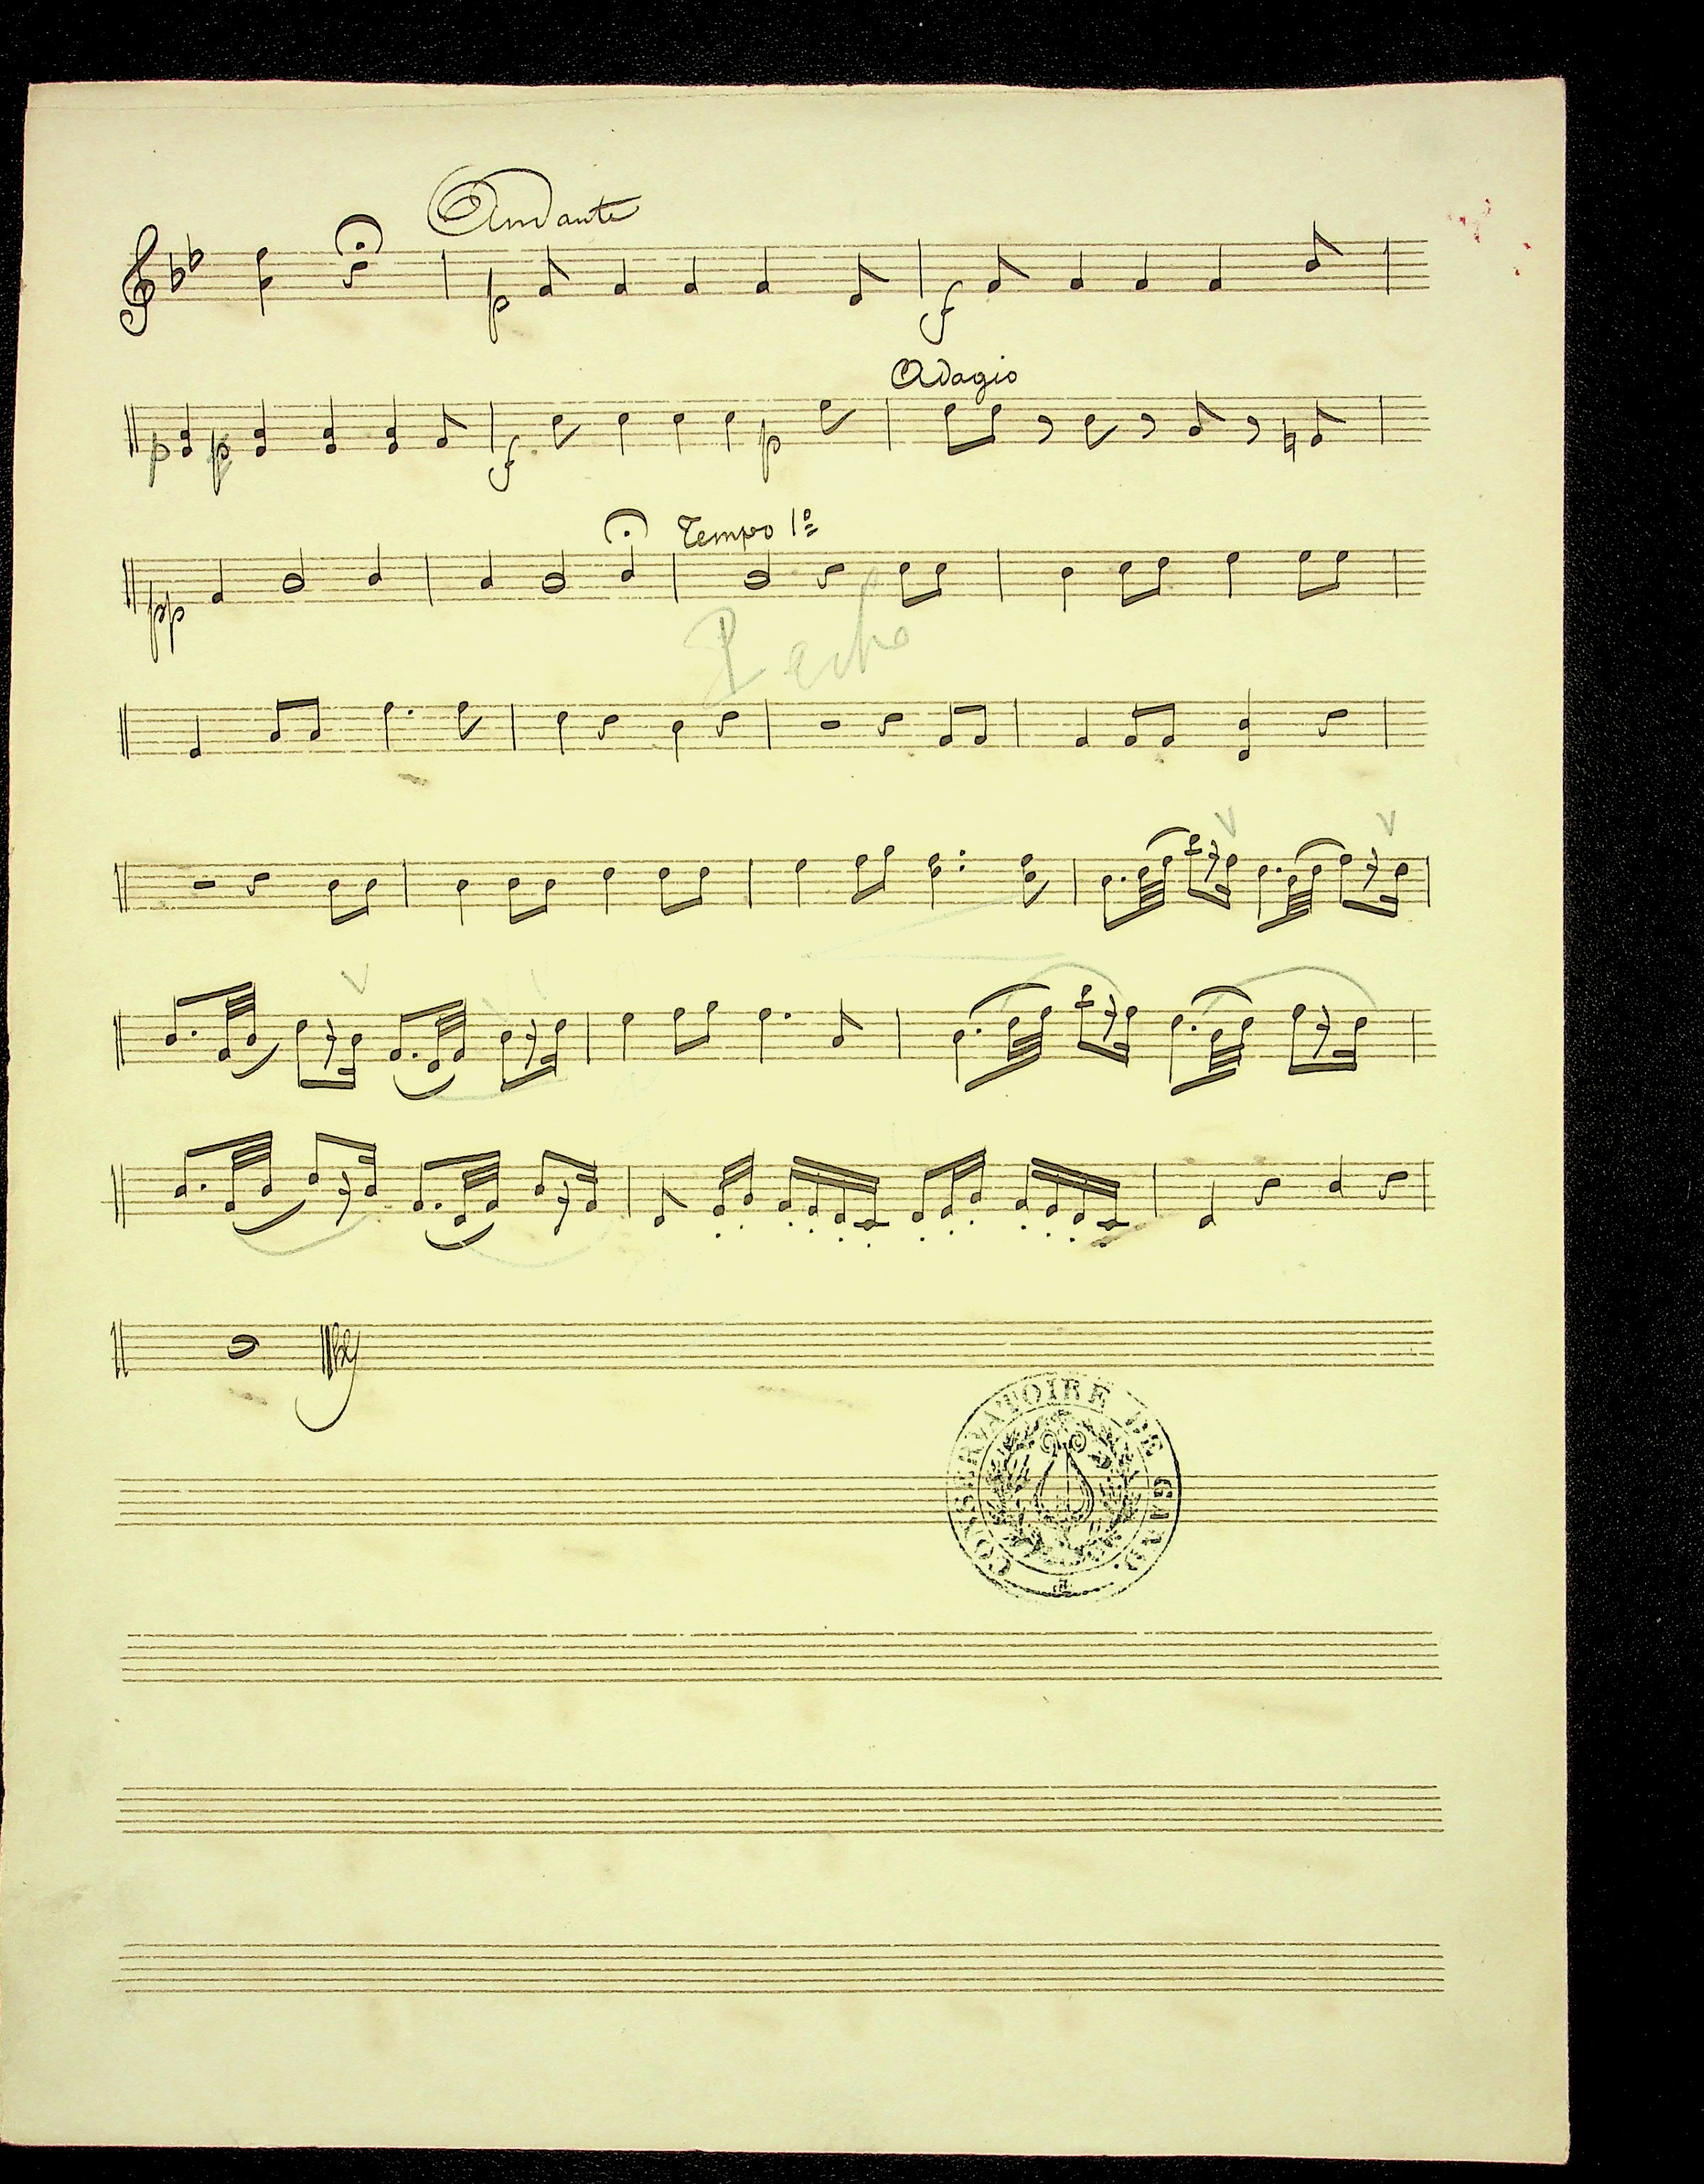 Andante
p f
Adagio
p p f p
Tempo 1º
pp
P echo
CONSERVATOIRE DE GAND.